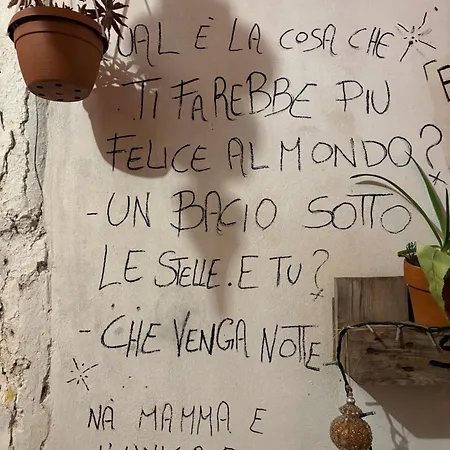 QUAL È LA COSA CHE
TI FAREBBE PIU
FELICE AL MONDO?
- UN BACIO SOTTO
LE STELLE. E TU?
- CHE VENGA NOTTE
NA MAMMA E